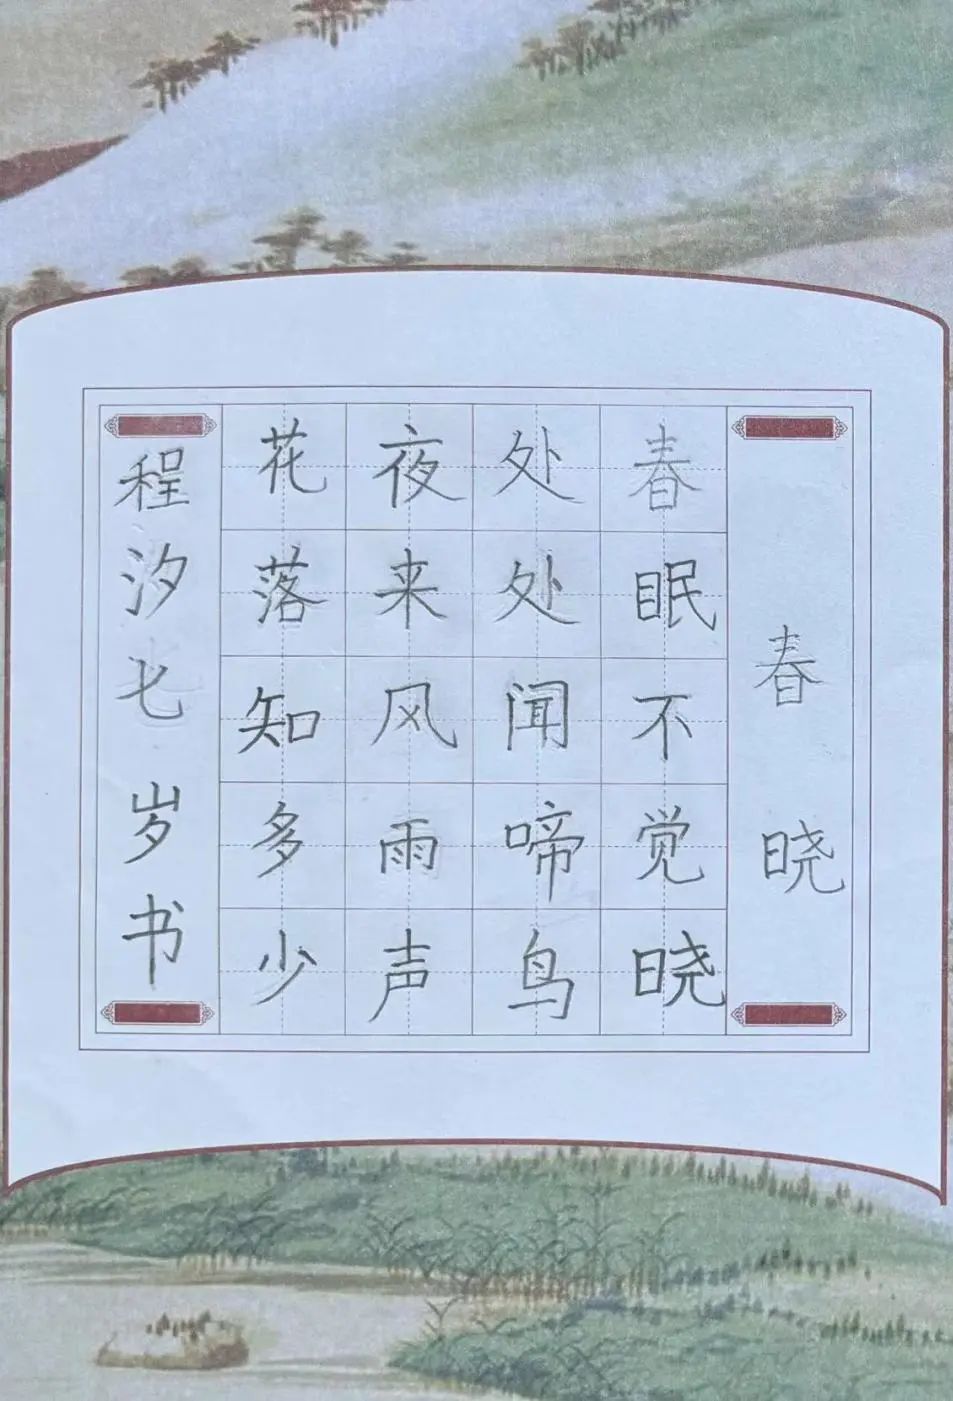 春晓
春眠不觉晓
处处闻啼鸟
夜来风雨声
花落知多少
程汐七岁书